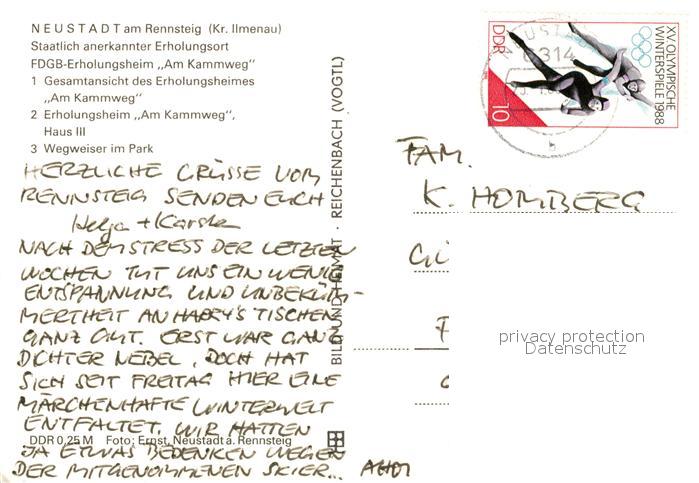 NEUSTADT am Rennsteig (Kr. Ilmenau)
Staatlich anerkannter Erholungsort
FDGB-Erholungsheim „Am Kammweg“
1 Gesamtansicht des Erholungsheimes
„Am Kammweg“
2 Erholungsheim „Am Kammweg“,
Haus III
3 Wegweiser im Park
HERZLICHE GRÜSSE VOM
RENNSTEIG SENDEN EUCH
Helga + Karsten
NACH DEM STRESS DER LETZTEN
WOCHEN TUT UNS EIN WENIG
ENTSPANNUNG UND UNBEKÜM-
MERTHEIT AN HARRY'S TISCHEN
GANZ GUT. ERST WAR GANZ
DICHTER NEBEL, DOCH HAT
SICH SEIT FREITAG HIER EINE
MÄRCHENHAFTE WINTERWELT
ENTFALTET. WIR HATTEN
DDR 0,25 M Foto: Ernst, Neustadt a. Rennsteig
JA ETWAS BEDENKEN WEGEN
DER MITGENOMMENEN SKIER... AHOI
BILD UND HEIMAT · REICHENBACH (VOGTL)
XV. OLYMPISCHE
WINTERSPIELE 1988
DDR
10
6314
FAM.
K. HOMBERG
GÜ
privacy protection
Datenschutz